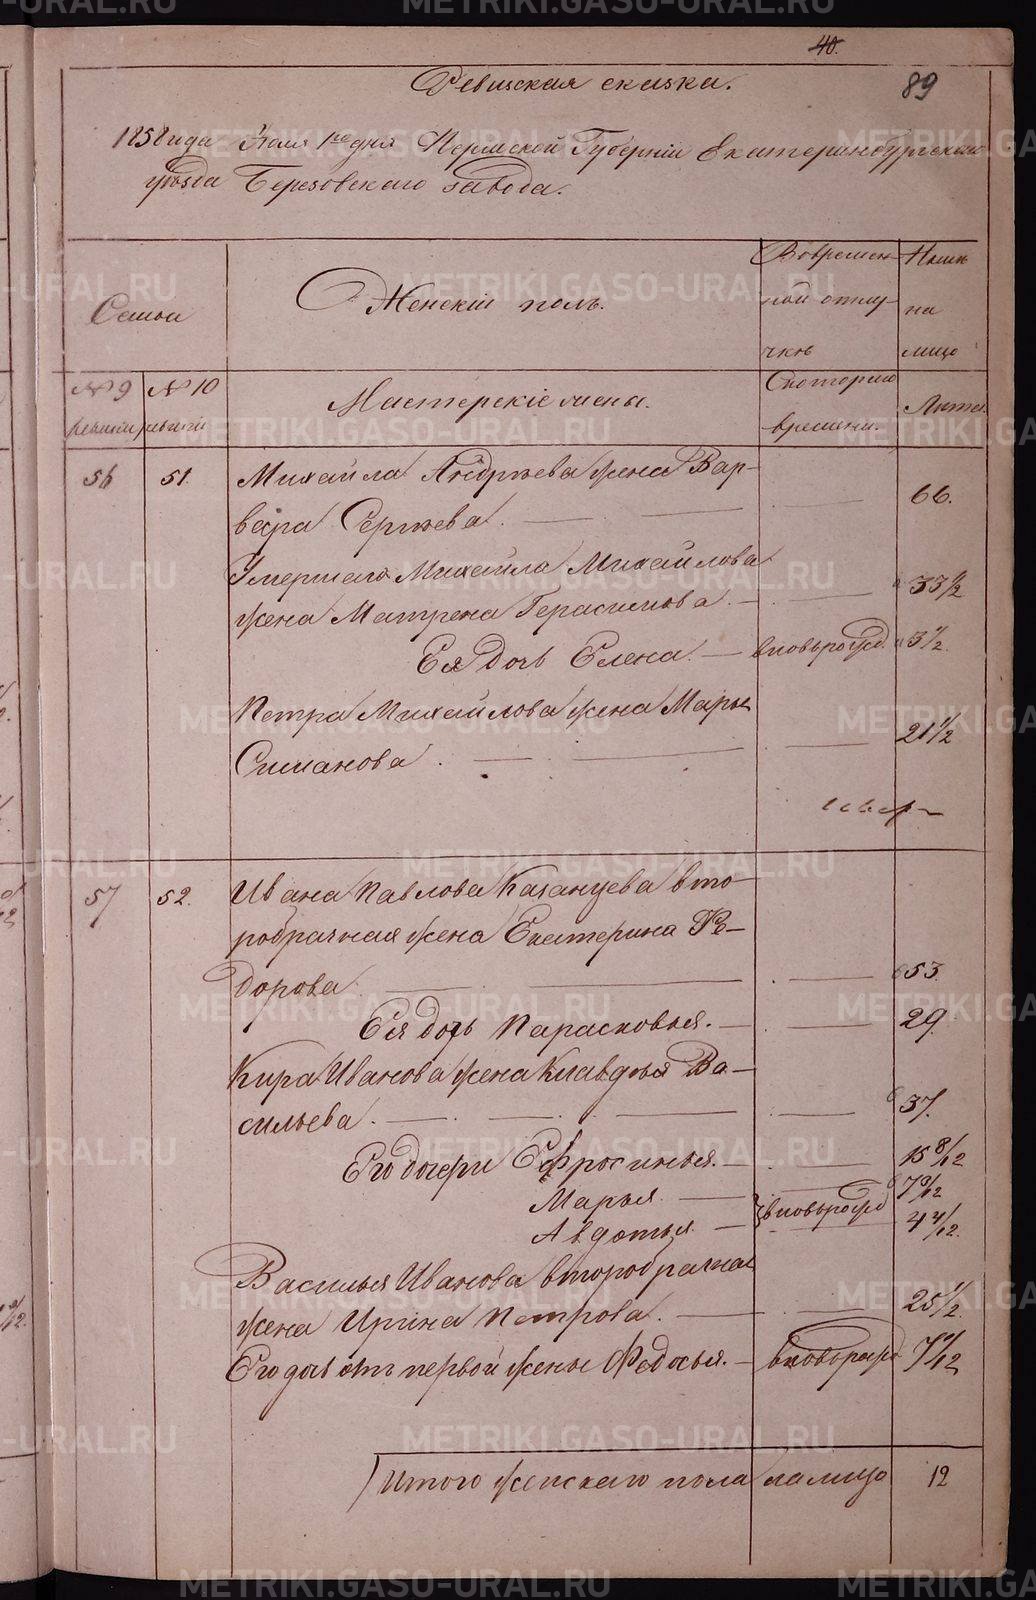 40.
89
Ревизская сказка.
1858 года Июля 1го дня Пермской Губерніи Екатеринбургскаго
уѣзда Березовскаго завода.
Семьи
Женскій полъ.
Во времен-
ной отлу-
чкѣ
Ныне
на
лицо
№ 9 ревизіи
№ 10 ревизіи
Мастерскіе жены.
Съ котораго
времени.
Лѣта
56 51. Михайла Андрѣева жена Вар-
вара Сергѣева. 66.
Умершаго Михайла Михайлова
жена Матрена Герасимова. 33 1/2
Ея дочь Елена. вновьрожд. 3 1/2.
Петра Михайлова жена Марья
Симанова. 21 1/2
57 52. Ивана Павлова Казанцева вто-
робрачная жена Екатерина Ѳе-
дорова 53.
Ея дочь Парасковья. 29.
Кира Иванова жена Клавдѣя Ва-
сильева. 37.
Его дочери Ефросинья. 15 8/12
Марья вновьрожд 7 9/12
Авдотья 4 4/12.
Василья Иванова второбрачная
жена Ирина Петрова. 25 1/2.
Его дочь отъ первой жены Федосья. вновьрожд 7 9/12
Итого женскаго пола налицо 12
METRIKI.GASO-URAL.RU